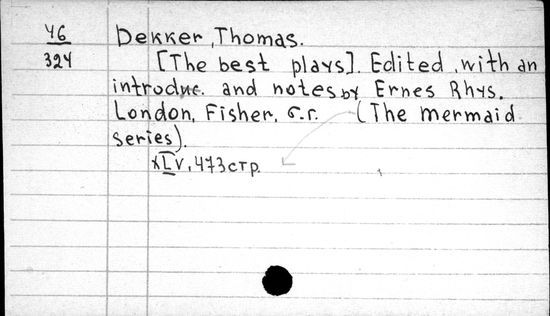 46
324
Dekker, Thomas.
[The best plays]. Edited, with an
introduc. and notes by Ernes Rhys.
London, Fisher, б.г. (The mermaid
series).
XLV, 473стр.